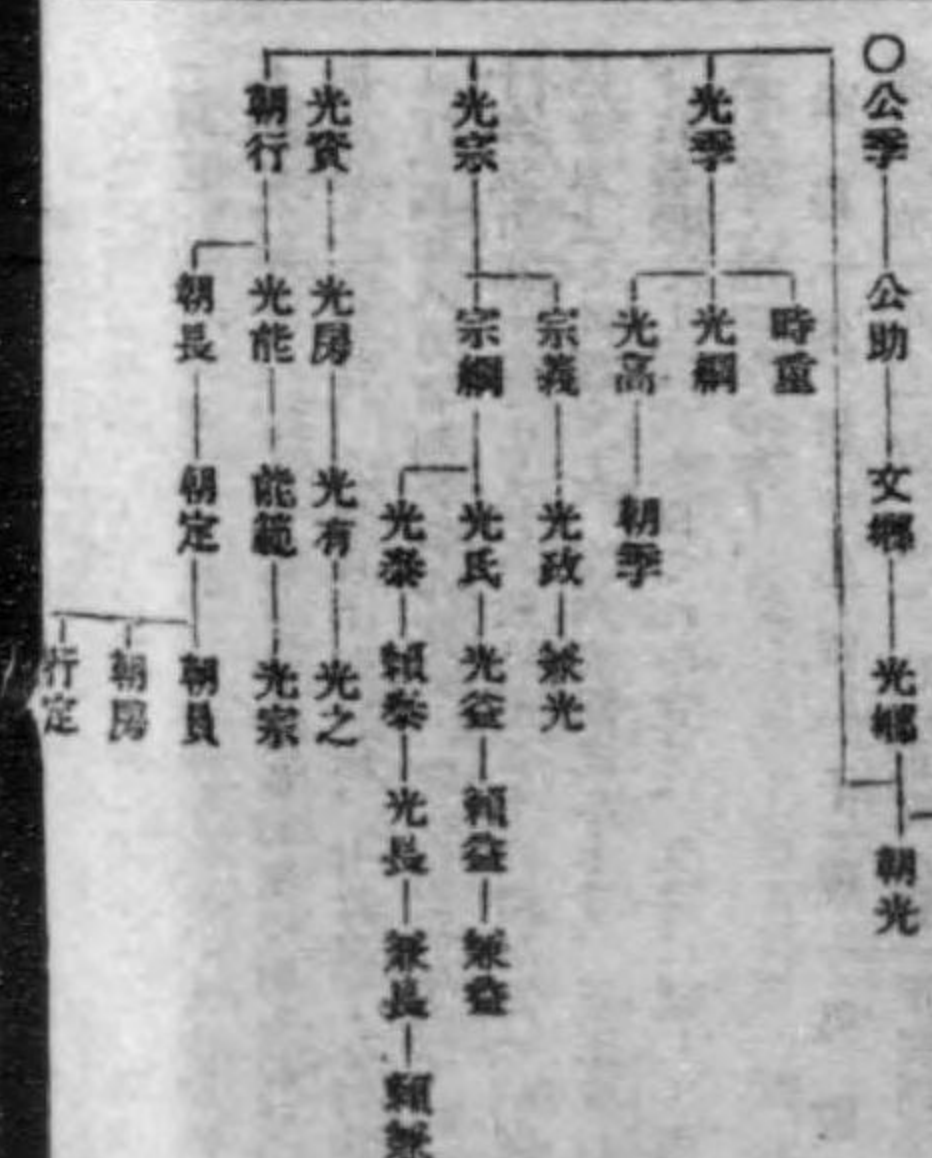 〇公季
公助
文郷
光郷
朝光
光季
時重
光綱
光高
朝季
光宗
宗義
光政
兼光
宗綱
光氏
光益
頼益
兼益
光泰
頼泰
光長
兼長
頼兼
光資
光房
光有
光之
朝行
光能
能範
光宗
朝長
朝定
朝員
朝房
行定